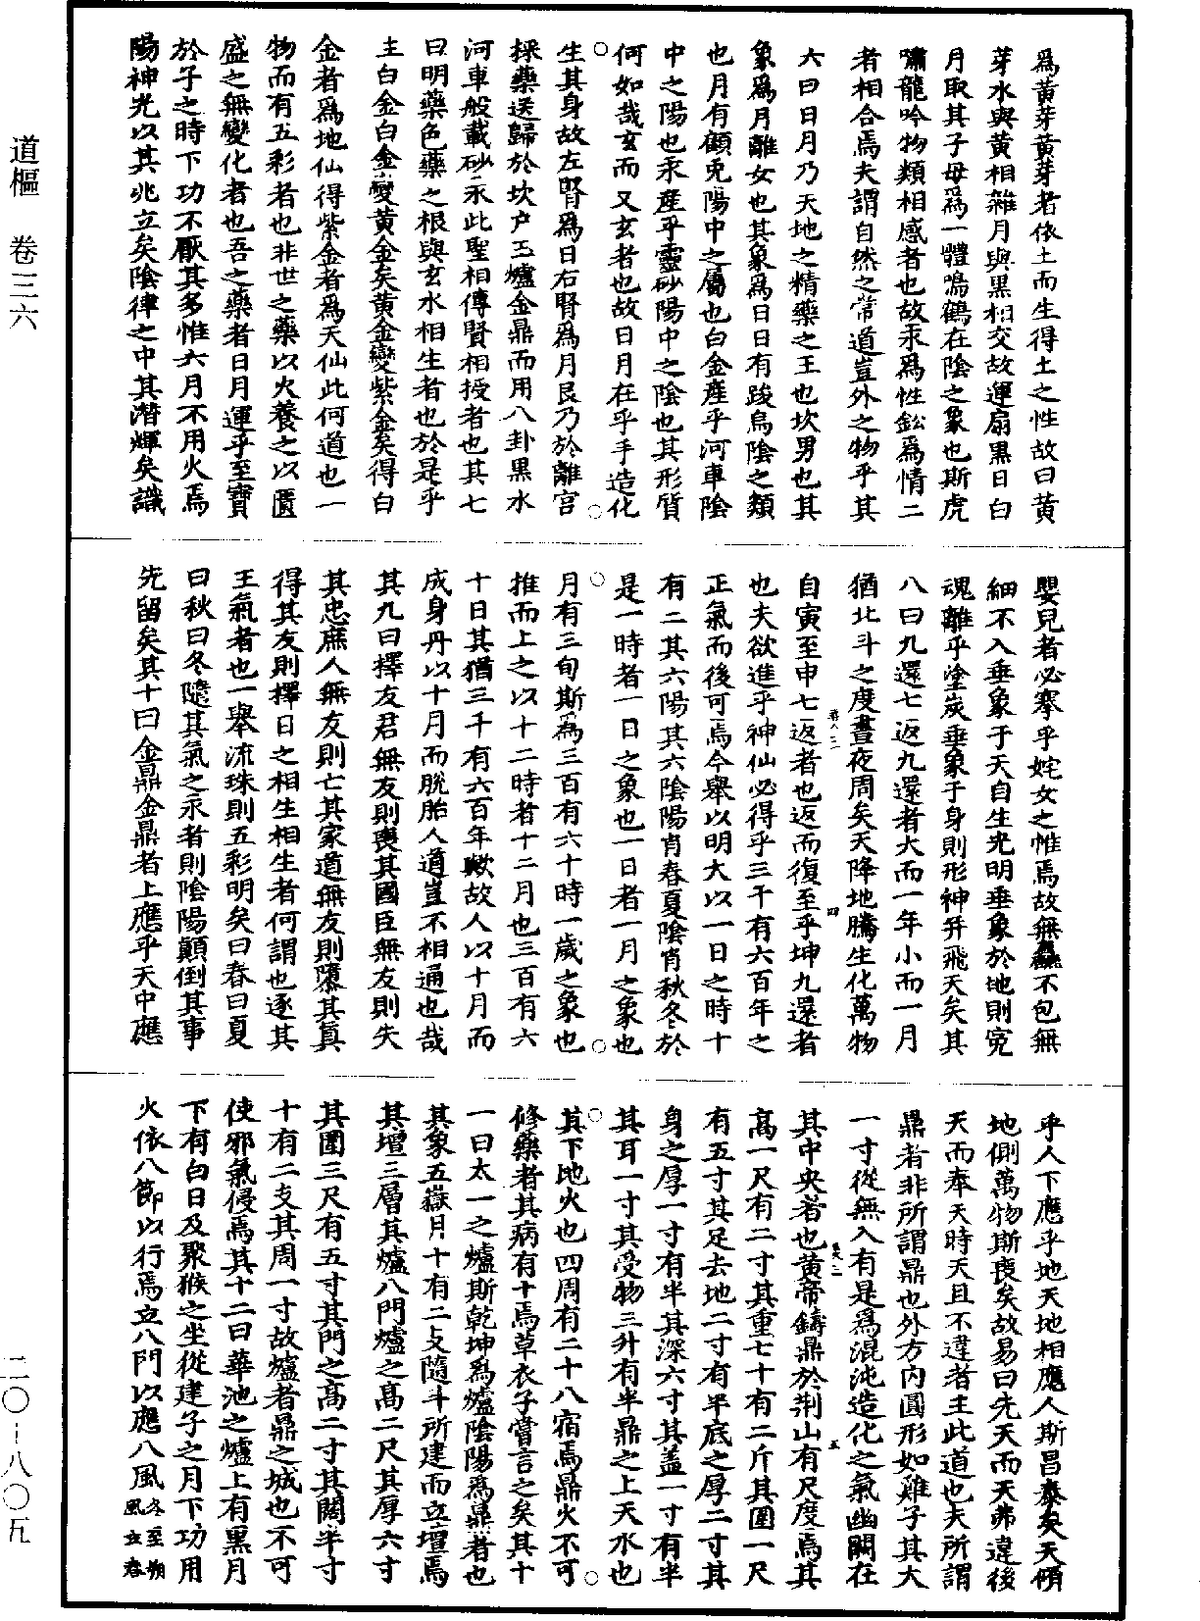 道樞　卷三六
二〇—八〇九
爲黃芽黃芽者依土而生得土之性故曰黃
芽水與黃相雜月與黑相交故運扇黑日白
月取其子母爲一體鳴鶴在陰之象也斯虎
嘯龍吟物類相感者也故汞爲性鈆爲情二
者相合焉夫謂自然之常道豈外之物乎其
六曰日月乃天地之精藥之王也坎男也其
象爲月離女也其象爲日日有踆烏陰之類
也月有顧兔陽中之屬也白金產乎河車陰
中之陽也汞產乎靈砂陽中之陰也其形質
何如哉玄而又玄者也故日月在乎手造化
生其身故左腎爲日右腎爲月艮乃於離宮
採藥送歸於坎户玉爐金鼎而用八卦黑水
河車般載砂汞此聖相傳賢相授者也其七
曰明藥色藥之根與玄水相生者也於是乎
主白金白金變黃金矣黃金變紫金矣得白
金者爲地仙得紫金者爲天仙此何道也一
物而有五彩者也非世之藥以火養之以匱
盛之無變化者也吾之藥者日月運乎至寶
於子之時下功不厭其多惟六月不用火焉
陽神光以其兆立矣陰律之中其潛輝矣識
嬰兒者必搴乎姹女之惟焉故無麤不包無
細不入垂象于天自生光明垂象於地則寃
魂離乎塗炭垂象于身則形神并飛天矣其
八曰九還七返九還者大而一年小而一月
猶北斗之度晝夜周矣天降地騰生化萬物
自寅至申七返者也返而復至乎坤九還者
也夫欲進乎神仙必得乎三千有六百年之
正氣而後可焉今舉以明大以一日之時十
有二其六陽其六陰陽肖春夏陰肖秋冬於
是一時者一日之象也一日者一月之象也
月有三旬斯爲三百有六十時一歲之象也
推而上之以十二時者十二月也三百有六
十日其猶三千有六百年歟故人以十月而
成身丹以十月而脫胎人道豈不相通也哉
其九曰擇友君無友則喪其國臣無友則失
其忠庶人無友則亡其家道無友則隳其真
得其友則擇日之相生相生者何謂也逐其
王氣者也一舉流珠則五彩明矣曰春曰夏
曰秋曰冬隨其氣之汞者則陰陽顛倒其事
先留矣其十曰金鼎金鼎者上應乎天中應
乎人下應乎地天地相應人斯昌泰矣天傾
地側萬物斯喪矣故易曰先天而天弗違後
天而奉天時天且不違者主此道也夫所謂
鼎者非所謂鼎也外方内圓形如雞子其大
一寸從無入有是爲混沌造化之氣幽關在
其中央者也黃帝鑄鼎於荆山有尺度焉其
高一尺有二寸其重七十有二斤其圍一尺
有五寸其足去地二寸有半底之厚二寸其
身之厚一寸有半其深六寸其盖一寸有半
其耳一寸其受物三升有半鼎之上天水也
其下地火也四周有二十八宿焉鼎火不可
修藥者其病有十焉草衣子嘗言之矣其十
一曰太一之爐斯乾坤爲爐陰陽爲鼎者也
其象五嶽月十有二攴隨斗所建而立壇焉
其壇三層其爐八門爐之高二尺其厚六寸
其圍三尺有五寸其門之高二寸其闊半寸
十有二支其周一寸故爐者鼎之城也不可
使邪氣侵焉其十二曰華池之爐上有黑月
下有白日及聚猴之坐從建子之月下功用
火依八節以行焉立八門以應八風冬至朔風立春